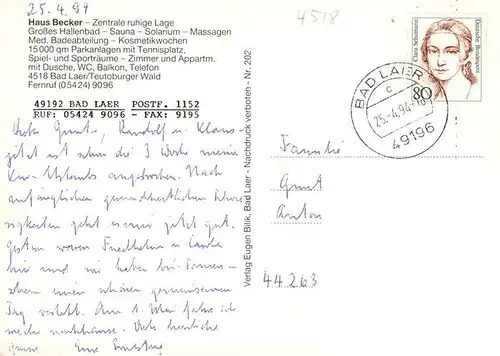 25.4.94
4518
Haus Becker – Zentrale ruhige Lage
Großes Hallenbad – Sauna – Solarium – Massagen
Med. Badeabteilung – Kosmetikwochen
15 000 qm Parkanlagen mit Tennisplatz,
Spiel- und Sporträume – Zimmer und Appartm.
mit Dusche, WC, Balkon, Telefon
4518 Bad Laer/Teutoburger Wald
Fernruf (05424) 9096
49192 BAD LAER POSTF. 1152
RUF: 05424 9096 - FAX: 9195
Liebe Gunt, Rudolf u. Klaus
jetzt ist schon die 3 Woche meine
Kur-Urlaubs angebrochen. Nach
anfänglichen gesundheitlichen
geht es mir jetzt gut.
Gestern waren Friedhelm u.
hier und wir haben bei Sonnen-
schein einen schönen gemeinsamen
Tag verlebt. Am 1. Mai fahre ich
wieder nachhause. Viele herzliche
Grüsse Eure
Verlag Eugen Bilik, Bad Laer - Nachdruck verboten - Nr. 202
Clara Schumann
Deutsche Bundespost
80
BAD LAER
c
25.-4.94-16
49196
Familie
Gunt
Anton
44263